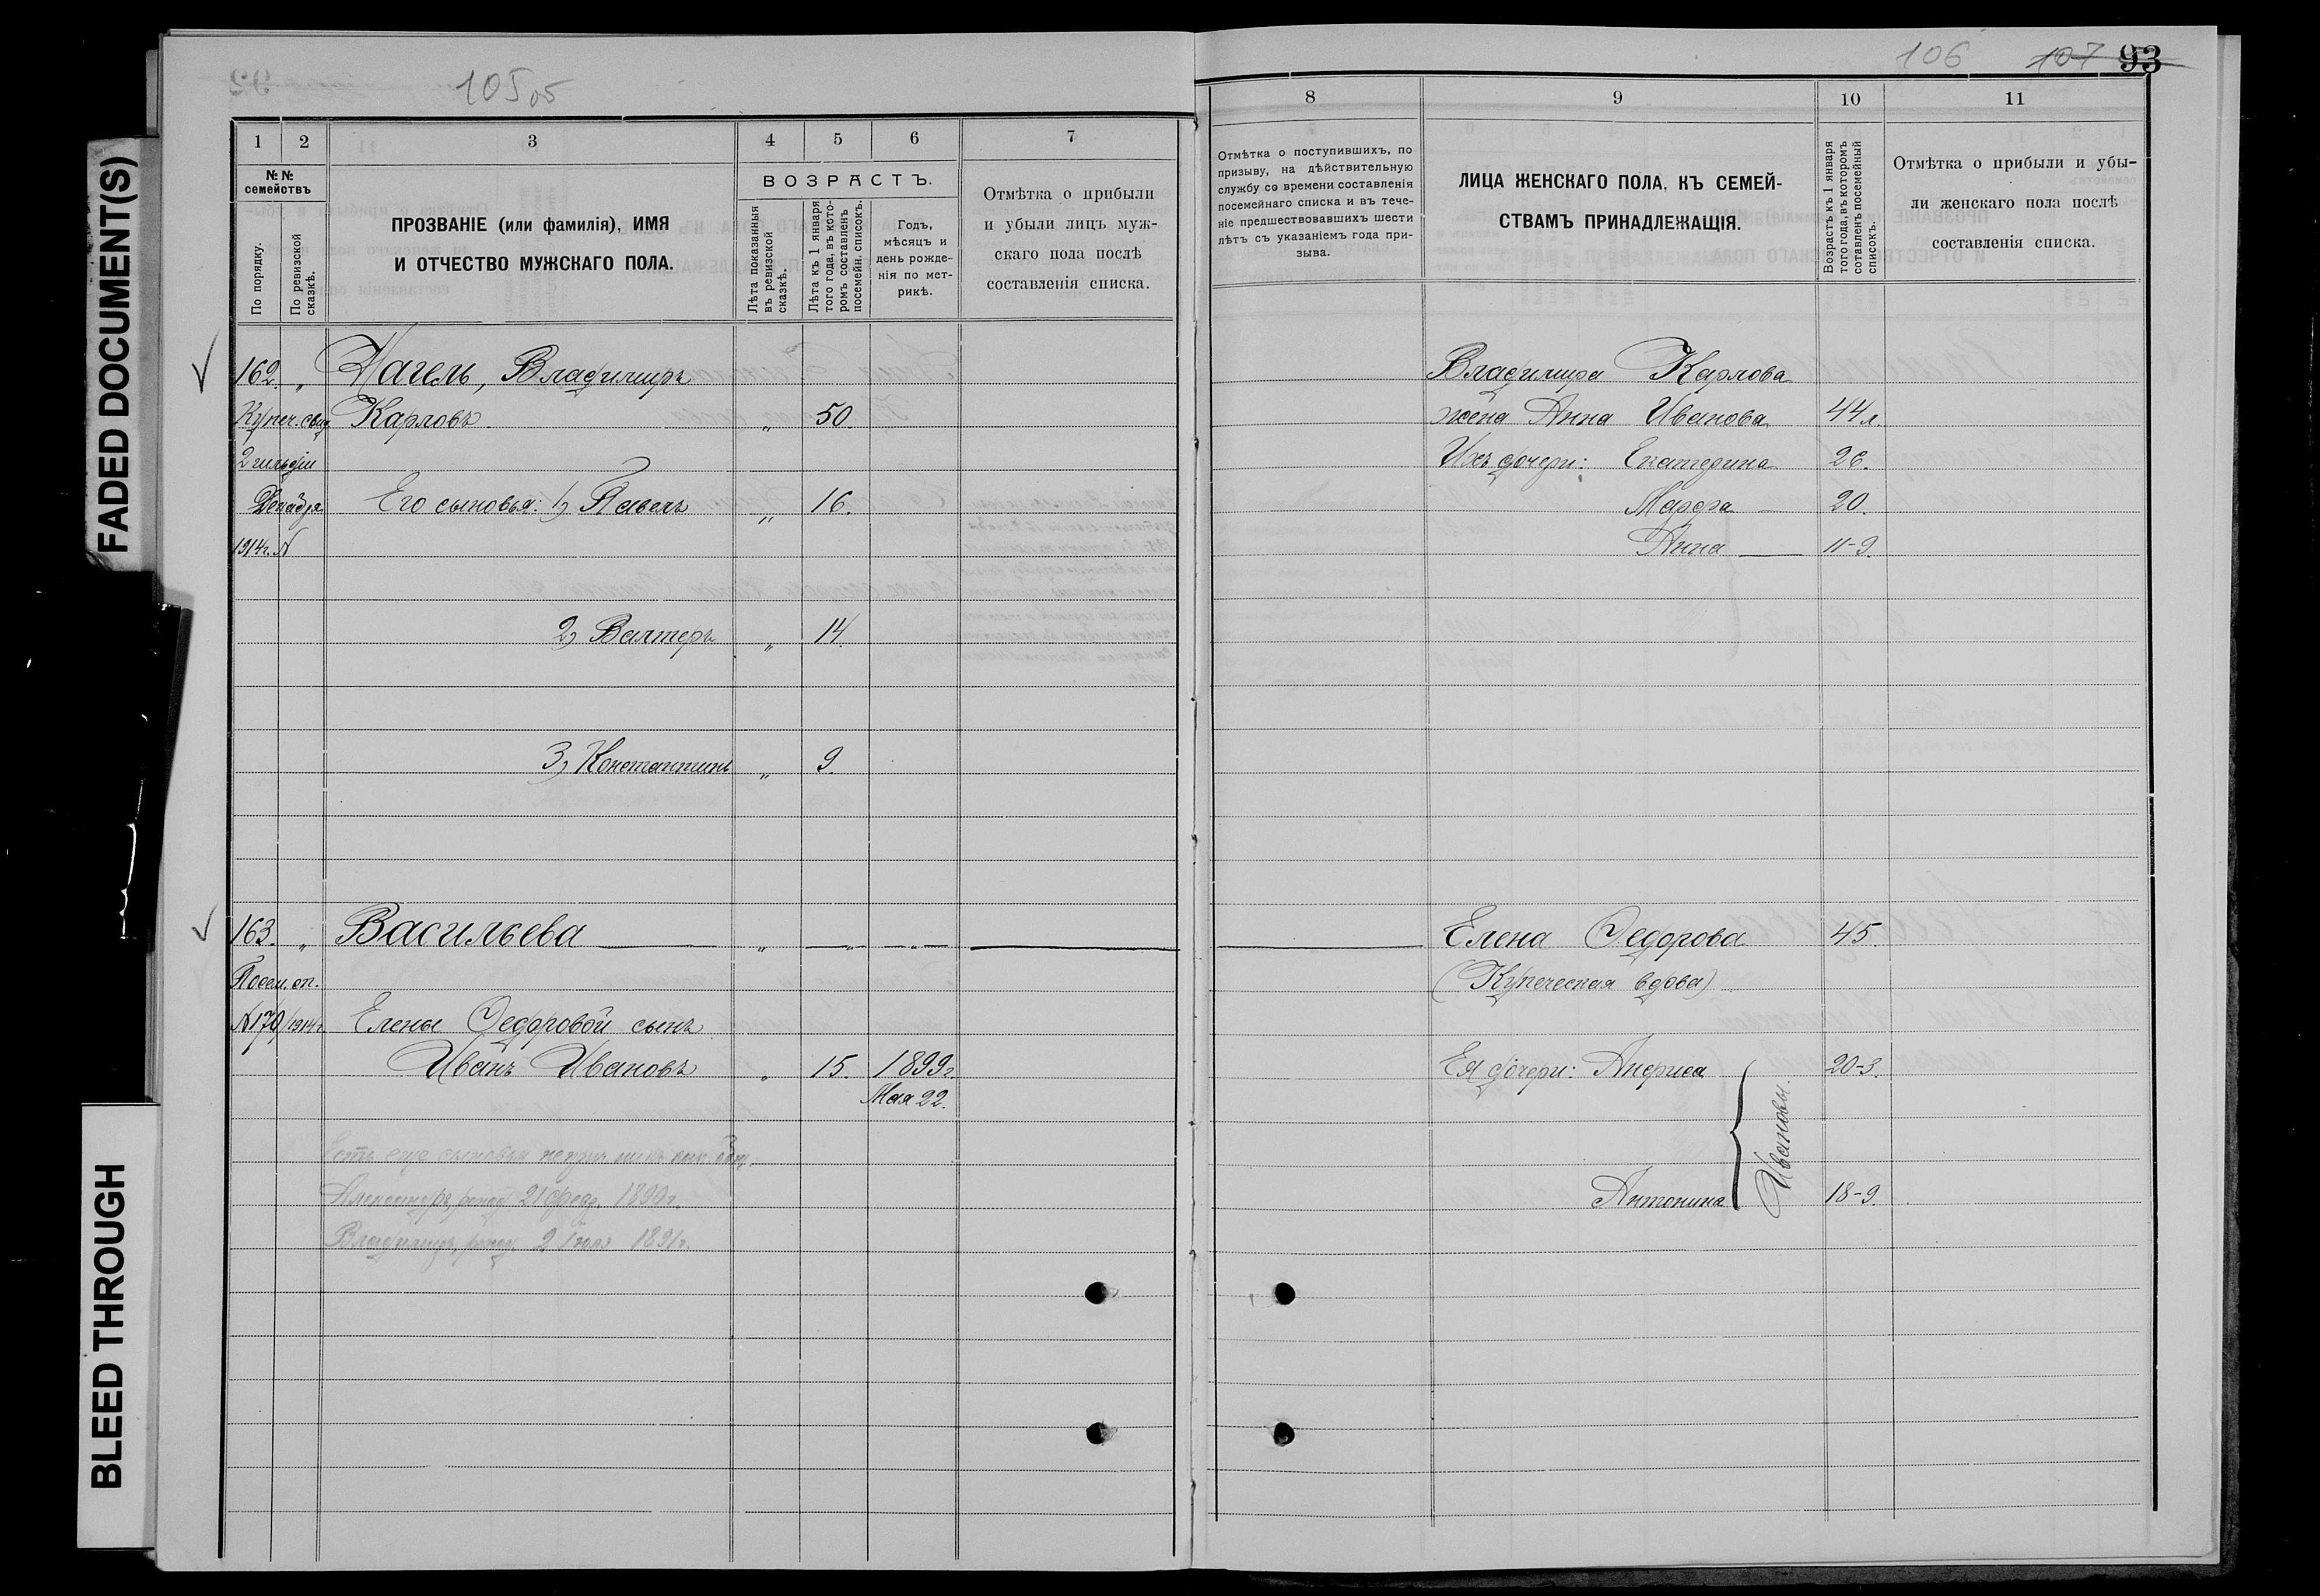 FADED DOCUMENT(S)
BLEED THROUGH
105 об
1
2
3
4
5
6
7
№№ семействъ
По порядку.
По ревизской сказкѣ.
ПРОЗВАНІЕ (или фамилія), ИМЯ
И ОТЧЕСТВО МУЖСКАГО ПОЛА.
ВОЗРАСТЪ.
Лѣта показанныя въ ревизской сказкѣ.
Лѣта къ 1 января того года, въ которомъ составленъ посемейн. списокъ.
Годъ,
мѣсяцъ и
день рожде-
нія по мет-
рикѣ.
Отмѣтка о прибыли
и убыли лицъ муж-
скаго пола послѣ
составленія списка.
162. „ Нагель, Владимиръ
Купеч. свид. Карловъ „ 50.
2 гильдіи
Декабря Его сыновья: 1) Павелъ „ 16.
1914г. №
2) Валтеръ „ 14.
3) Константинъ „ 9.
163. „ Васильева „ „ „
Посем. сп.
№170/1914г. Елены Ѳедоровой сынъ
Иванъ Ивановъ „ 15. 1899г.
Мая 22.
Александръ, 21 1890г.
Владимиръ, 2 1891г.
106 107 93
8
9
10
11
Отмѣтка о поступившихъ, по
призыву, на дѣйствительную
службу со времени составленія
посемейнаго списка и въ тече-
ніе предшествовавшихъ шести
лѣтъ съ указаніемъ года при-
зыва.
ЛИЦА ЖЕНСКАГО ПОЛА, КЪ СЕМЕЙ-
СТВАМЪ ПРИНАДЛЕЖАЩІЯ.
Возрастъ къ 1 января
того года, въ которомъ
сотавленъ посемейный
списокъ.
Отмѣтка о прибыли и убы-
ли женскаго пола послѣ
составленія списка.
Владимира Карлова
жена Анна Иванова 44 л.
Ихъ дочери: Екатерина 26.
Марфа 20.
Анна 11-9.
Елена Ѳедорова 45.
(Купеческая вдова)
Ея дочери: Анфиса 20-3.
Ивановы.
Антонина 18-9.